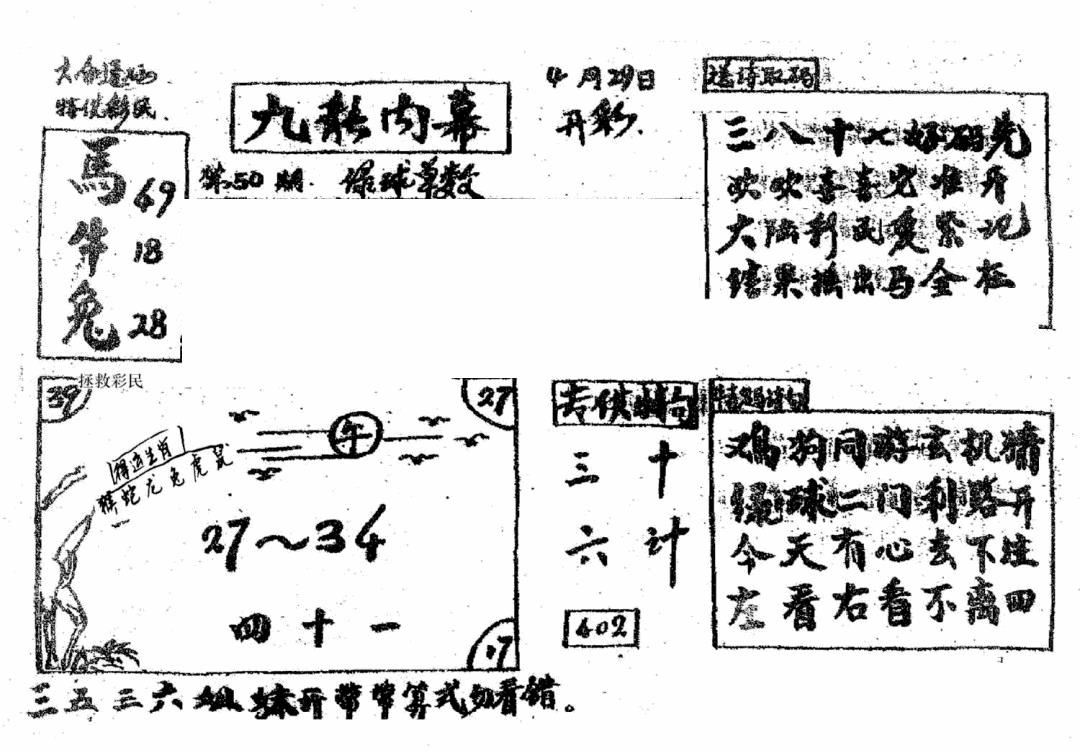 特供彩民
馬 69
牛 18
兔 28
九龙内幕
第50期 绿球单数
4月29日
开彩
送诗取码
三八十七好码先
欢欢喜喜它准开
大陆彩民要紧记
结果摇出马全在
拯救彩民
39
27
午
精选生肖
猴蛇龙兔虎鼠
27～34
四十一
17
专供特句
三十
六计
402
特码诗句
鸡狗同游玄机猜
绿球二门利路开
今天有心去下注
左看右看不离四
三五三六姐妹开 带带算式勿看错。